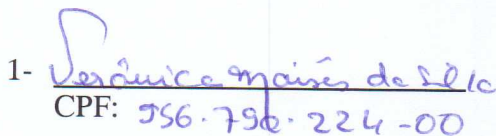 1- Verônica Moisés da Silva
CPF: 956.790.224-00